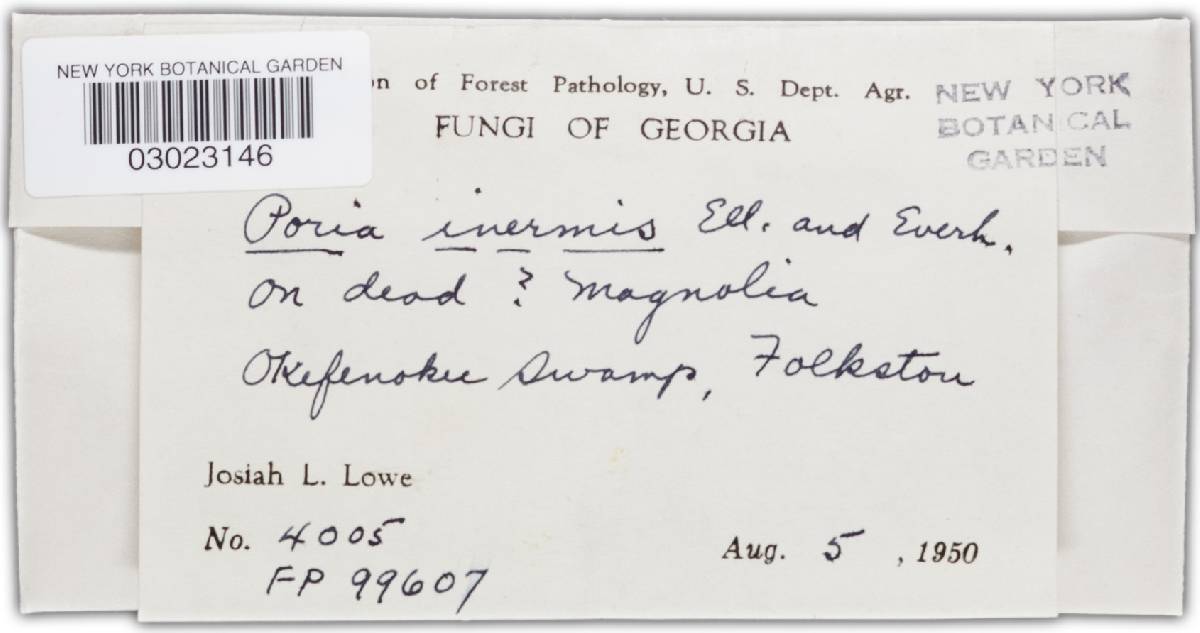 NEW YORK BOTANICAL GARDEN
03023146
of Forest Pathology, U. S. Dept. Agr.
FUNGI OF GEORGIA
NEW YORK
BOTANICAL
GARDEN
Poria inermis Ell. and Everh.
on dead ? Magnolia
Okefenokee Swamp, Folkston
Josiah L. Lowe
No. 4005
FP 99607
Aug. 5, 1950